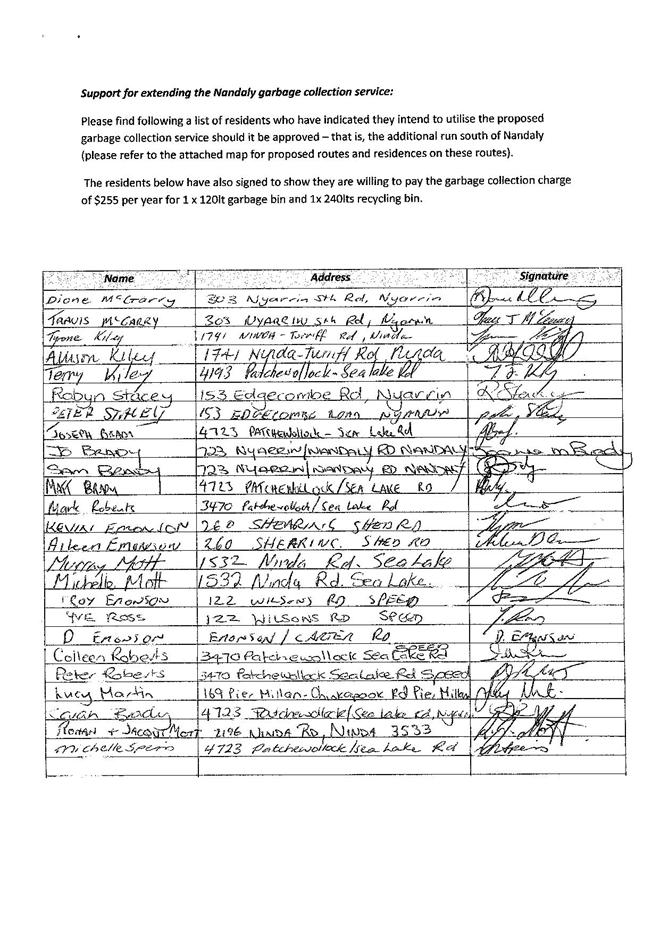 Support for extending the Nandaly garbage collection service:
Please find following a list of residents who have indicated they intend to utilise the proposed
garbage collection service should it be approved – that is, the additional run south of Nandaly
(please refer to the attached map for proposed routes and residences on these routes).
The residents below have also signed to show they are willing to pay the garbage collection charge
of $255 per year for 1 x 120lt garbage bin and 1x 240lts recycling bin.
Name Address Signature
Diane McGarry 303 Nyarrin Sth Rd, Nyarrin
TRAVIS McGARRY 303 NYARRIN Sth Rd, Nyarrin
Tyrone Kiley 1741 NINDA-Turriff Rd, Ninda
Allison Kiley 1741 Ninda-Turriff Rd Ninda
Terry Kiley 4193 Patchewollock-Sealake Rd
Robyn Stacey 153 Edgecombe Rd, Nyarrin
PETER 153 EDGECOMBE ROAD NYARRIN
JOSEPH BRADY 4723 PATCHEWollock - SEA Lake Rd
BRADY 723 NYARRIN/NANDALY RD NANDALY
SAM BRADY 723 NYARRIN/NANDALY RD NANDALY
MATT BRADY 4723 PATCHEWOLLOCK/SEA LAKE RD
Mark Roberts 3470 Patchewollock/Sea Lake Rd
KEVIN EMONSON 260 SHEARING SHED RD
Aileen EMONSON 260 SHEARING SHED RD
Murray Mott 1532 Ninda Rd. Sea Lake
Michelle Mott 1532 Ninda Rd. Sea Lake.
TROY EMONSON 122 WILSONS RD SPEED
YVE ROSS 122 WILSONS RD SPEED
D EMONSON EMONSON / CARTER RD D. EMONSON
Colleen Roberts 3470 Patchewollock Sea Lake Rd SPEED
Peter Roberts 3470 Patchewollock SeaLake Rd Speed
Lucy Martin 169 Pier Millan-Chinkapook Rd Pier Millan
Brady 4723 Patchewollock/Sea Lake rd, Nyarrin
ROHAN + JACQUI MOTT 2196 NINDA RD, NINDA 3533
Michelle Speirs 4723 Patchewollock/Sea Lake Rd